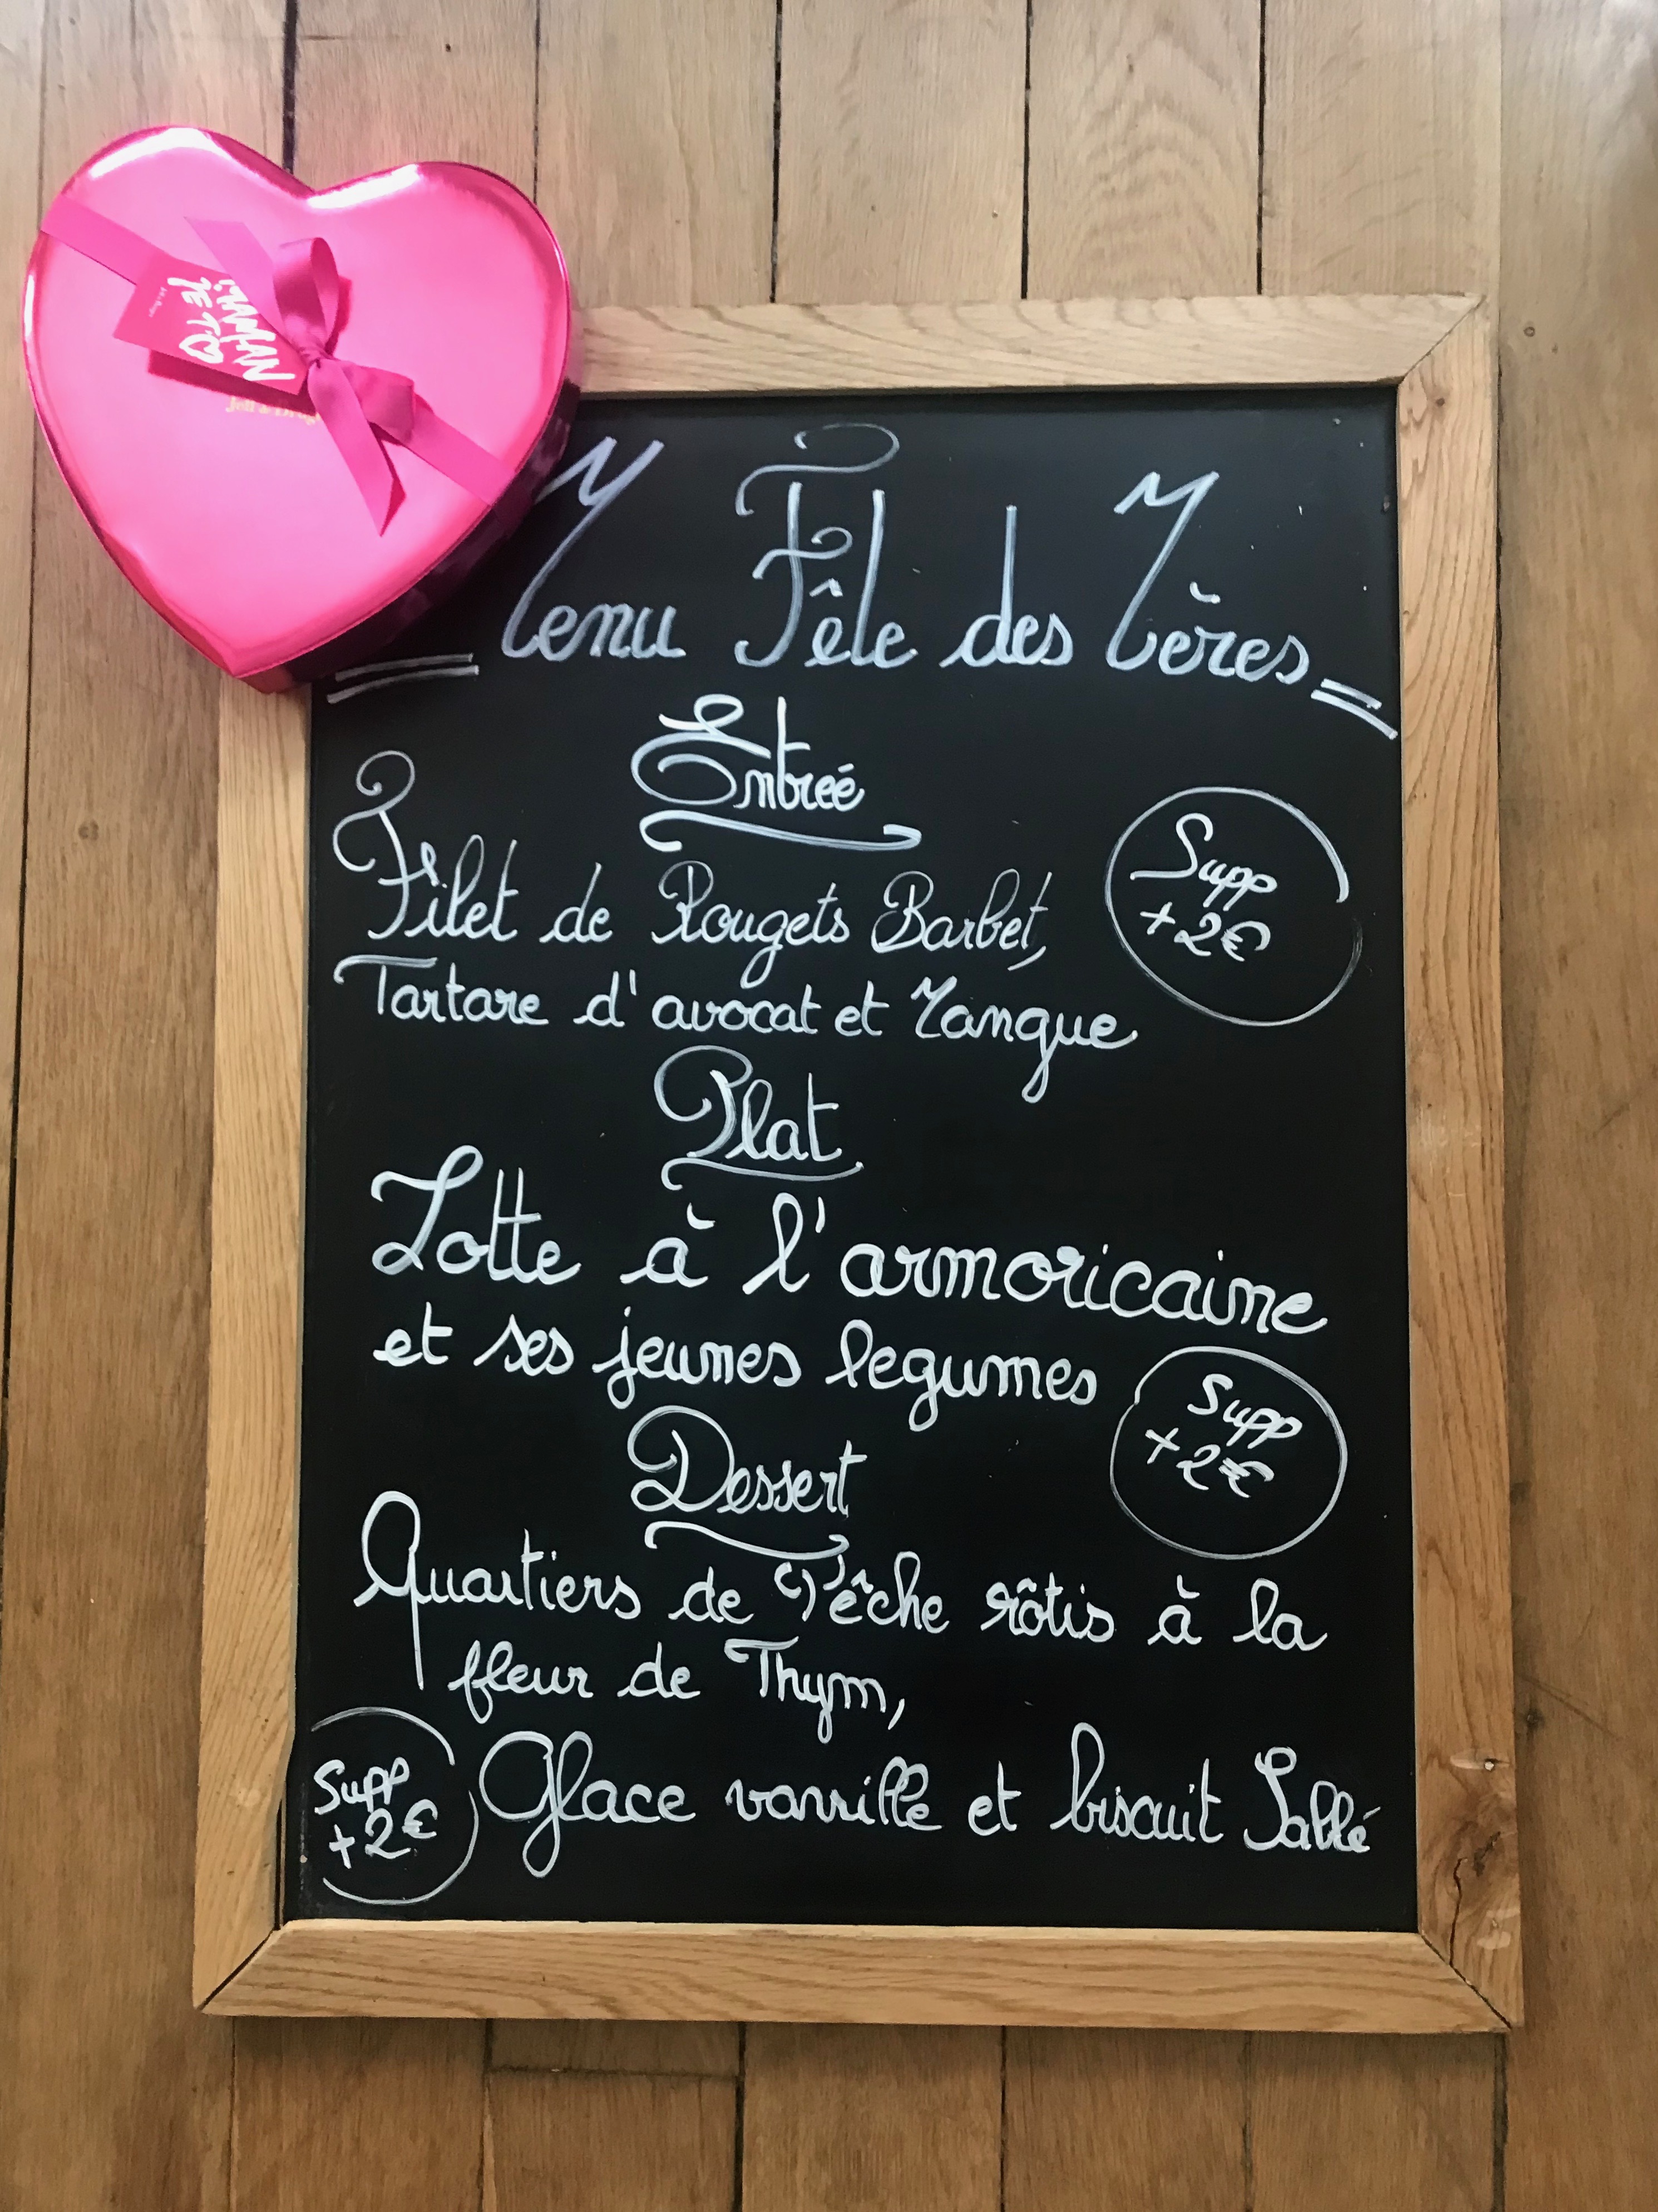 MAMAN
JE T'
Menu Fête des Mères
Entreé
Filet de Rougets Barbet,
Supp
+2€
Tartare d'avocat et Mangue
Plat
Lotte à l'armoricaine
et ses jeunes legumes
Supp
+2€
Dessert
Quartiers de Pêche rôtis à la
fleur de Thym,
Supp
+2€
Glace vanille et biscuit Sablé